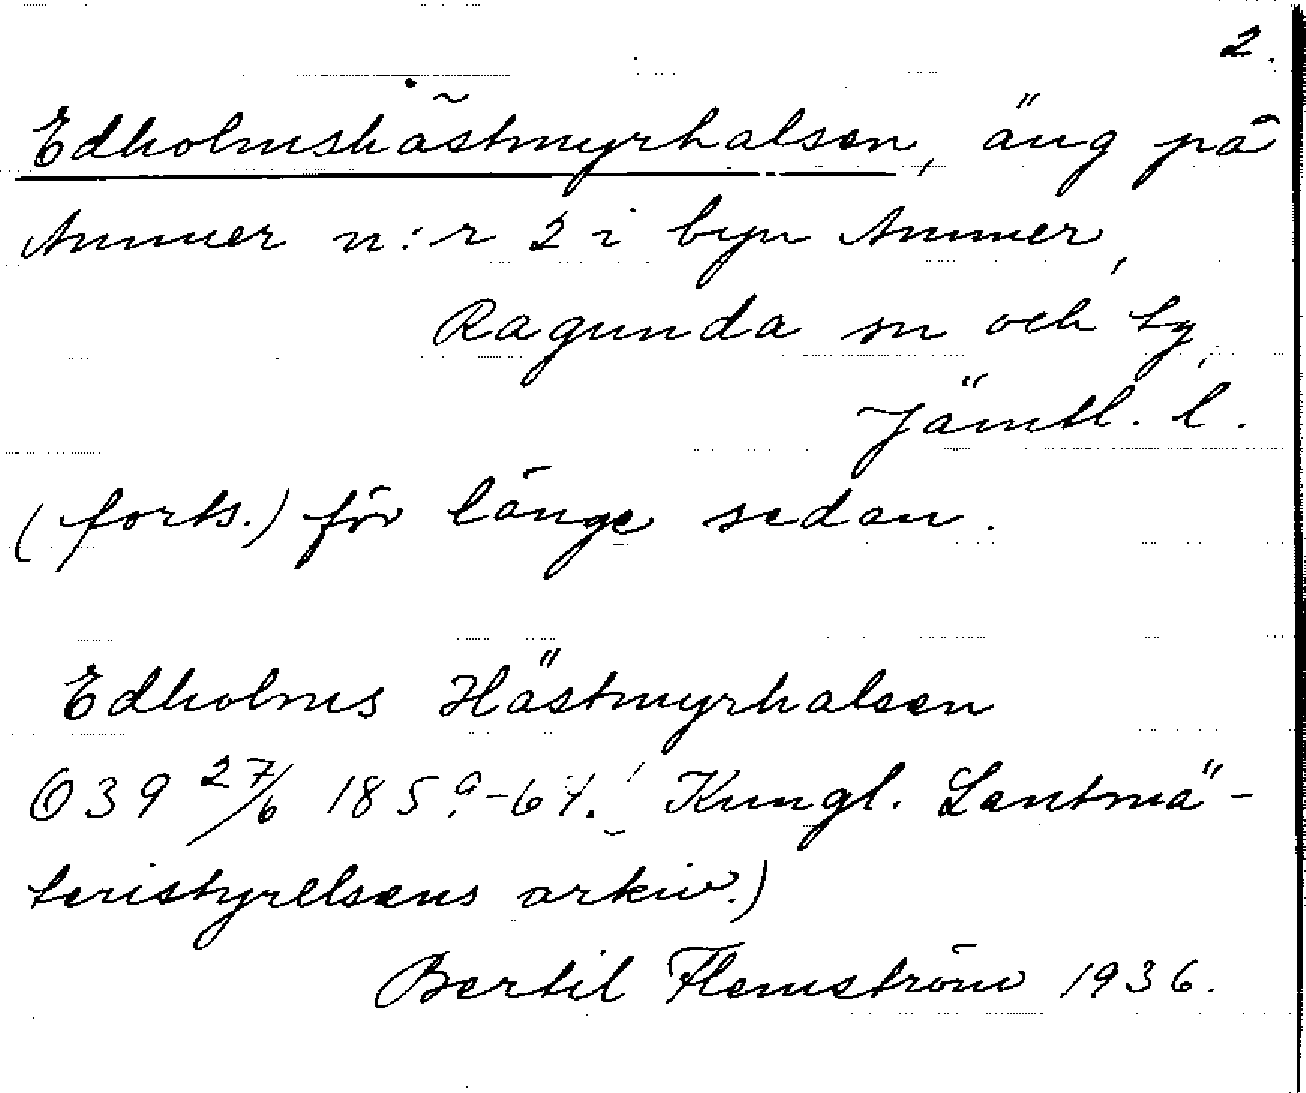 2.
Edholmshästmyrhalsen, äng på
Ammer n:r 2 i byn Ammer,
Ragunda sn och tg,
Jämtl. l.
(forts.) för länge sedan.
Edholms Hästmyrhalsen
O39 27/6 1859-64. Kungl. Lantmä-
teristyrelsens arkiv.)
Bertil Flemström 1936.